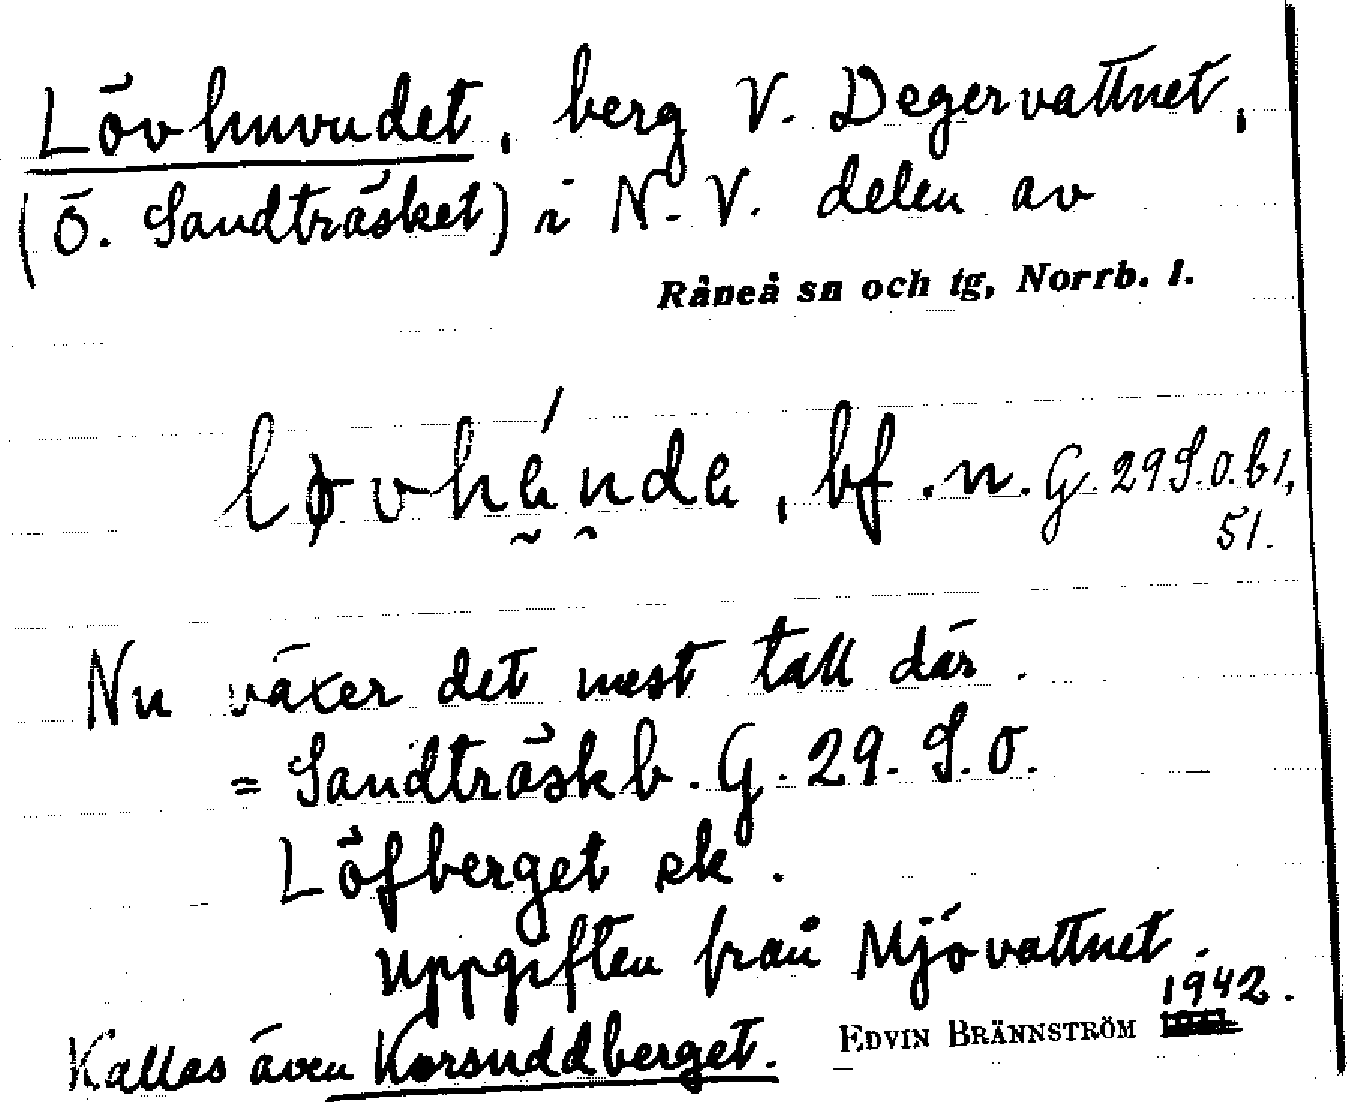 Lövhuvudet, berg V. Degervattnet,
(Ö. Sandträsket) i N.V. delen av
Råneå sn och tg, Norrb. l.
bf. n. G. 29 S.O. bl,
51.
Nu växer det mest tall där.
= Sandträskb. G. 29. S.O.
Löfberget ek.
Uppgiften från Mjövattnet.
1942.
Kallas även Korsuddberget.
EDVIN BRÄNNSTRÖM